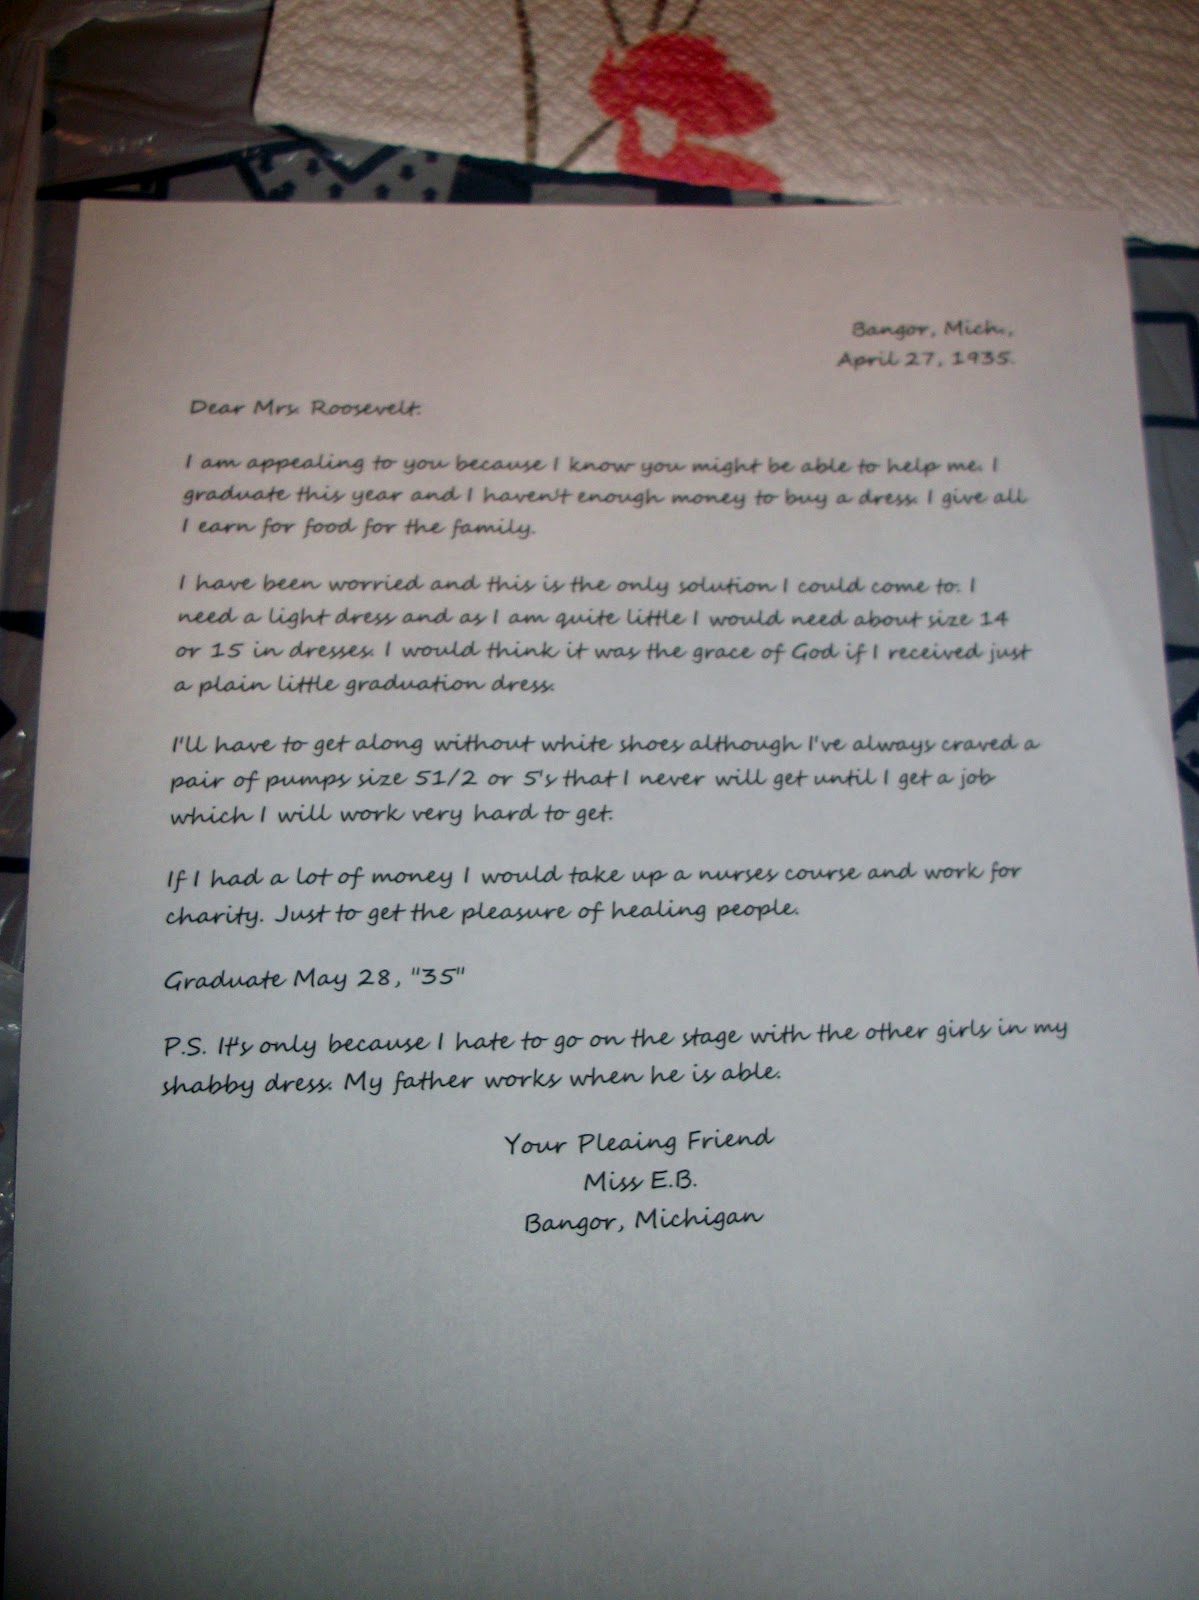 Bangor, Mich.,
April 27, 1935.
Dear Mrs. Roosevelt.
I am appealing to you because I know you might be able to help me. I
graduate this year and I haven't enough money to buy a dress. I give all
I earn for food for the family.
I have been worried and this is the only solution I could come to. I
need a light dress and as I am quite little I would need about size 14
or 15 in dresses. I would think it was the grace of God if I received just
a plain little graduation dress.
I'll have to get along without white shoes although I've always craved a
pair of pumps size 51/2 or 5's that I never will get until I get a job
which I will work very hard to get.
If I had a lot of money I would take up a nurses course and work for
charity. Just to get the pleasure of healing people.
Graduate May 28, "35"
P.S. It's only because I hate to go on the stage with the other girls in my
shabby dress. My father works when he is able.
Your Pleaing Friend
Miss E.B.
Bangor, Michigan